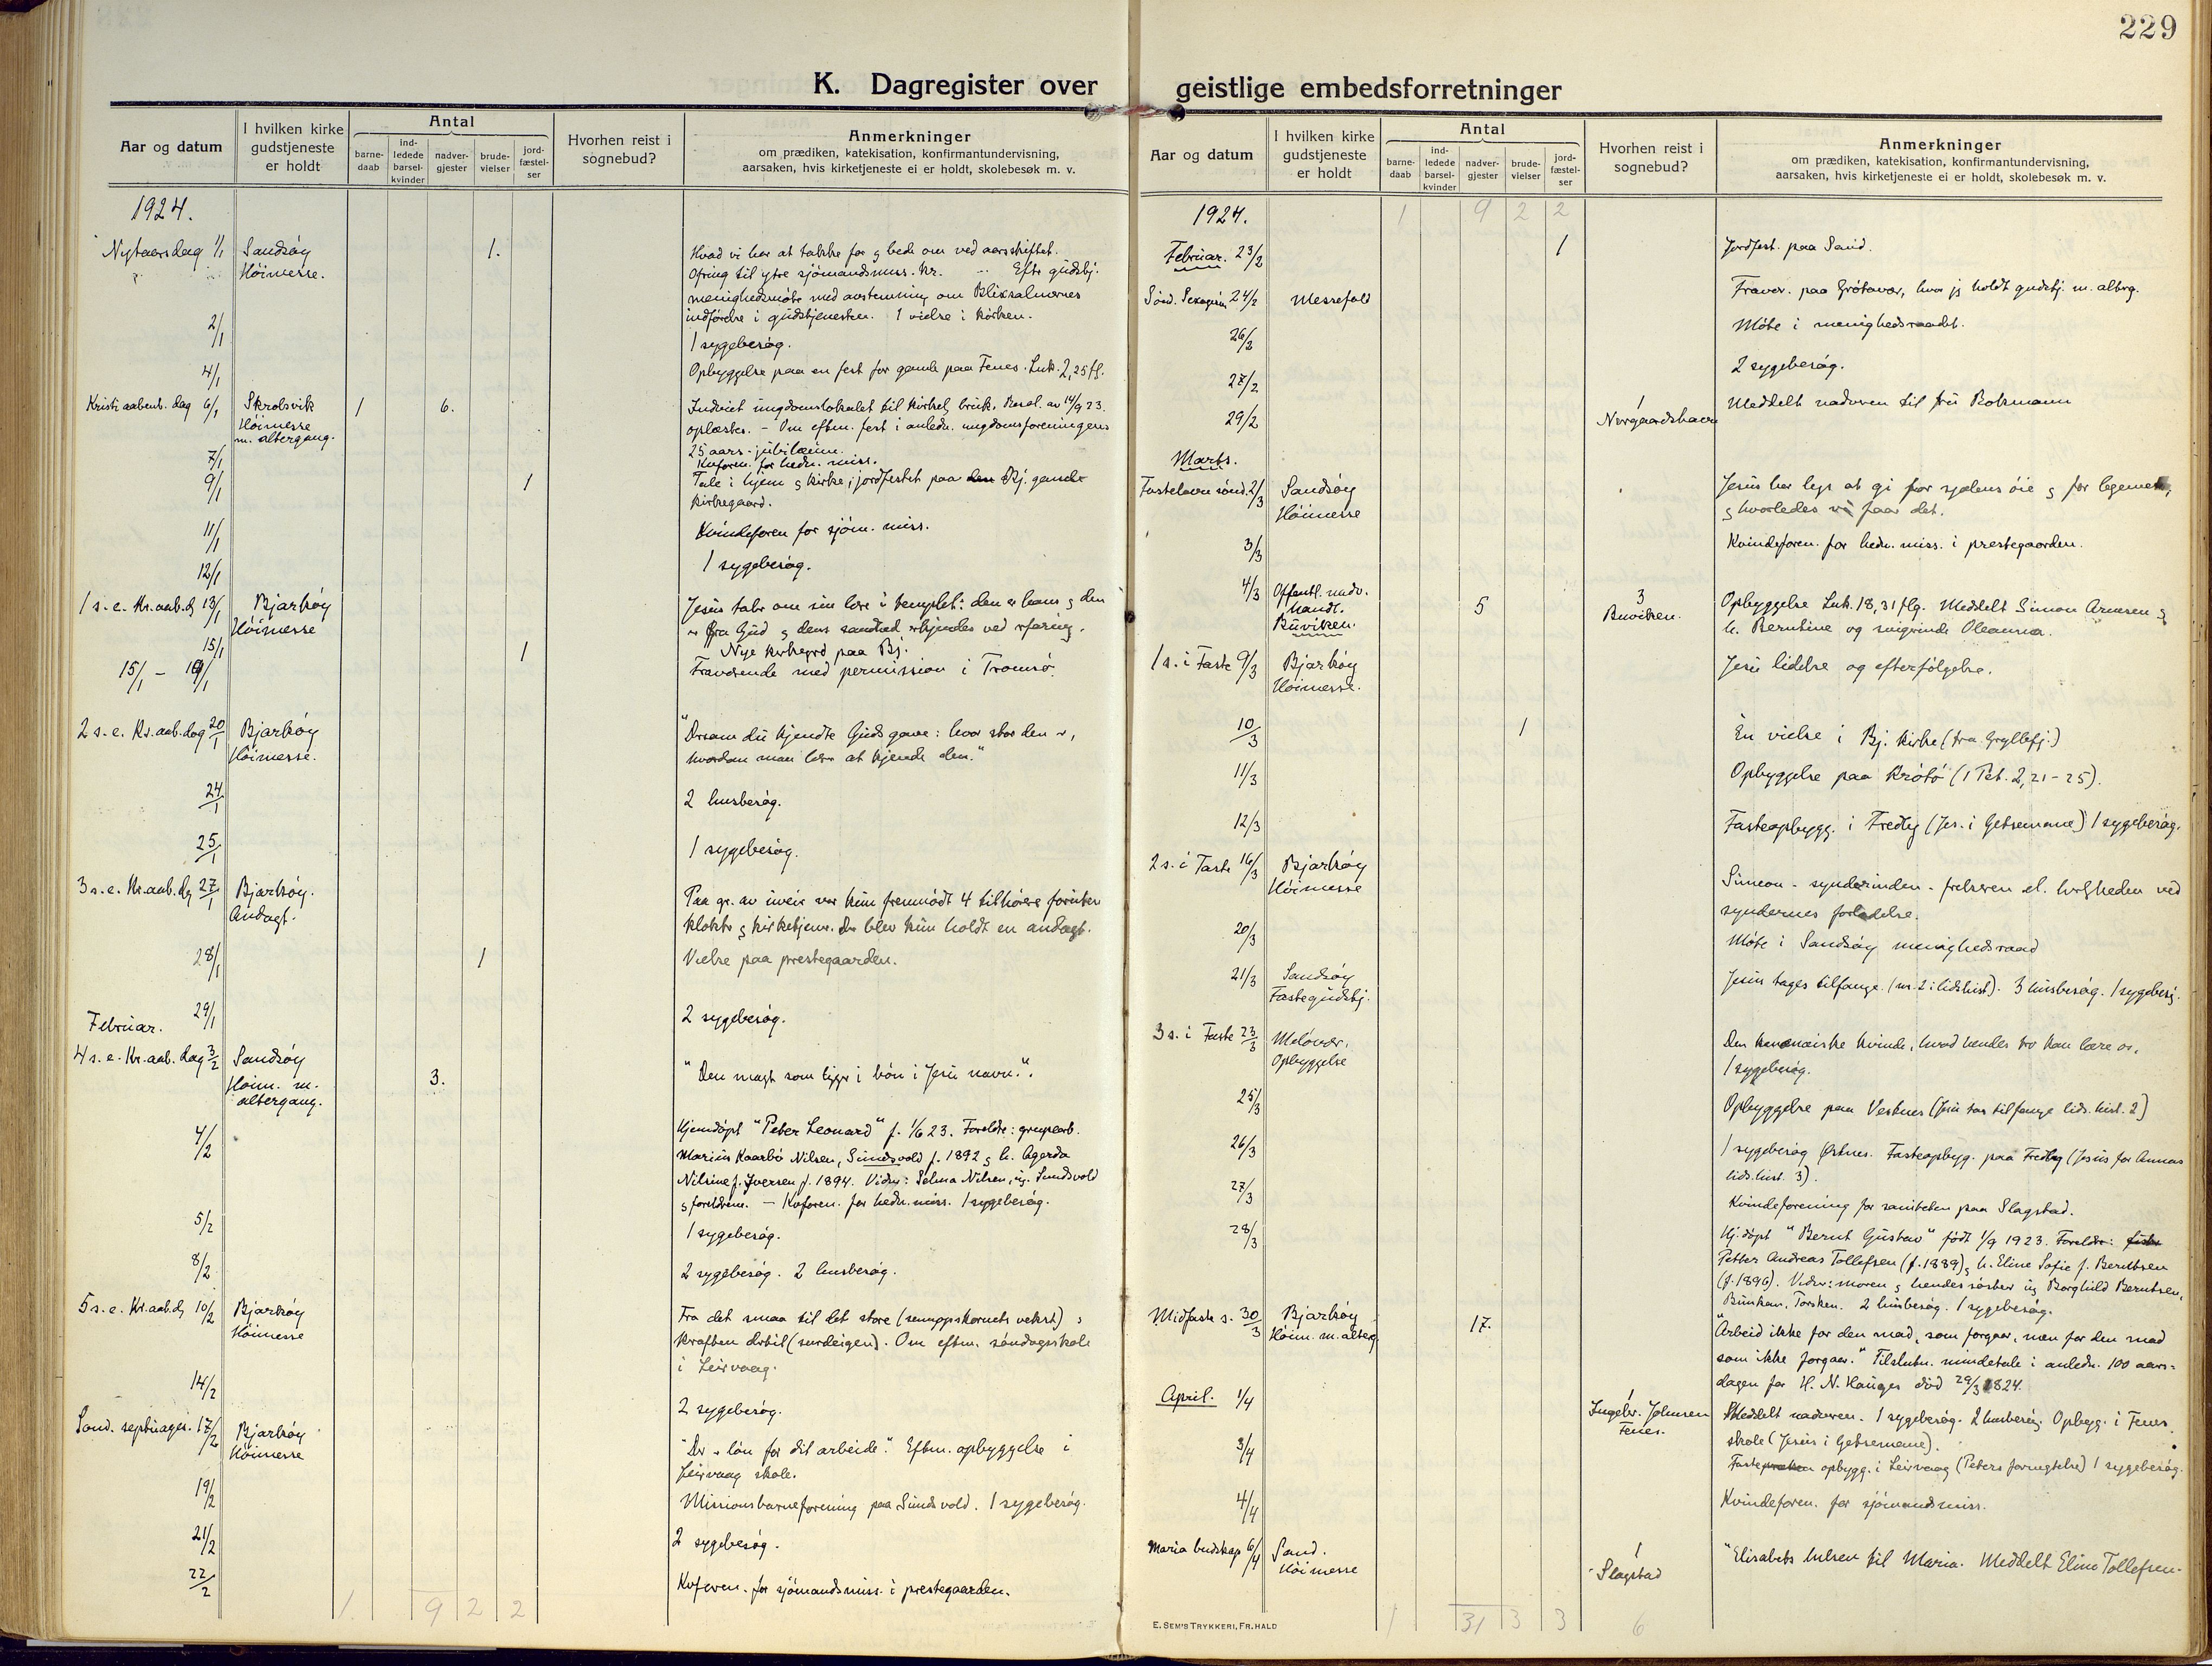 229
K. Dagregister over geistlige embedsforretninger
Aar og datum
I hvilken kirke gudstjeneste er holdt
Antal
barne-daab
ind-ledede barsel-kvinder
nadver-gjester
brude-vielser
jord-fæstel-ser
Hvorhen reist i sognebud?
Anmerkninger
om prædiken, katekisation, konfirmantundervisning,
aarsaken, hvis kirketjeneste ei er holdt, skolebesøk m. v.
1924.
Nytaarsdag 1/1 Sandsøy 1. Hvad vi har at takke for og bede om ved aarsskiftet.
Høimesse. Ofring til ytre sjömandsmiss. kr. -- Efter gudstj.
menighedsmøte med avstemning om Blixsalmernes
indførelse i gudstjenesten. 1 vielse i kirken.
2/1 1 sygebesøg.
4/1 Opbyggelse paa en fest for gamle paa Fenes. Luk. 2,25 ff.
Kristi aabenb. dag 6/1 Skrolsvik 1 6. Indviet ungdomslokalet til kirkelig bruk. Resol. av 14/9 23.
Høimesse oplæstes. - Om eftm. fest i anledn. ungdomsforeningens
m. altergang. 25 aars-jubilæum.
7/1 Kvforen. for hedn. miss.
9/1 1 Tale i hjem og kirke, jordfestet paa den Bj. gamle
kirkegaard.
11/1 Kvindeforen for sjöm. miss.
12/1 1 sygebesøg.
1 s. e. Kr. aab. dg 13/1 Bjarkøy Jesus taler om sin lære i templet: den er hans og den
Høimesse er fra Gud og dens sandhed erkjendes ved erfaring.
15/1 1 Nye kirkegrd paa Bj.
15/1 - 19/1 Fraværende med permission i Tromsø.
2 s. e. Kr. aab. dag 20/1 Bjarkøy "Dersom du kjendte Guds gave: hvor stor den er,
Høimesse. hvordan man lærer at kjende den."
24/1 2 husbesøg.
25/1 1 sygebesøg.
3 s. e. Kr. aab. dg 27/1 Bjarkøy. Paa gr. av uveir var kun fremmødt 4 tilhörere foruten
Andagt. klokker og kirketjener. Der blev kun holdt en andagt.
28/1 1 Vielse paa prestegaarden.
29/1 2 sygebesøg.
Februar.
4 s. e. Kr. aab. dag 3/2 Sandsøy
Høim. m. 3. "Den magt som ligger i bön i Jesu navn."
altergang.
4/2 Hjemdøpt "Peter Leonard" f. 1/6 23. Foreldre: grupearb.
Marius Kaarbø Nilsen, Sundsvold f. 1892 og h. Agarda
Nilsine f. Iversen f. 1894. Vidner: Selma Nilsen, ug. Sundsvold
og foreldrene. - Kvforen. for hedn. miss. 1 sygebesøg.
5/2 1 sygebesøg.
8/2 2 sygebesøg. 2 husbesøg.
5 s. e. Kr. aab. dg 10/2 Bjarkøy Fra det smaa til det store (sennepskornets vekst) og
Høimesse kraften dertil (surdeigen). Om eftm. søndagsskole
i Leirvaag.
14/2 2 sygebesøg.
Sønd. septuages. 17/2 Bjarkøy "Der er løn for dit arbeide." Eftm. opbyggelse i
Høimesse Leirvaag skole.
19/2 Missionsbarneforening paa Sundsvold. 1 sygebesøg.
21/2 2 sygebesøg.
22/2 Kvforen. for sjömandsmiss. i prestegaarden.
1 9 2 2
Aar og datum
I hvilken kirke gudstjeneste er holdt
Antal
barne-daab
ind-ledede barsel-kvinder
nadver-gjester
brude-vielser
jord-fæstel-ser
Hvorhen reist i sognebud?
Anmerkninger
om prædiken, katekisation, konfirmantundervisning,
aarsaken, hvis kirketjeneste ei er holdt, skolebesøk m. v.
1924. 1 9 2 2
Februar. 23/2 1 Jordfest. paa Sand.
Sønd. Sexagesim 24/2 Messefald Fravær. paa Grøtavær, hvor jeg holdt gudstj. m. alterg.
26/2 Møte i menighedsraadet.
27/2 2 sygebesøg.
29/2 1 Norgaardshavn Meddelt nadveren til fru Rokmann
Marts.
Fastelavns sønd. 2/3 Sandsøy Jesus har lys at gi for sjælens øie og for legemet,
Høimesse og hvorledes vi faar det.
3/3 Kvindeforen. for hedn. miss. i prestegaarden.
4/3 Offentl. nadv. handl. Buviken. 5 3 Buviken. Opbyggelse Luk. 18, 31 flg. Meddelt Simon Arnesen og
h. Berntine og svigerinde Oleanna.
1 s. i Faste 9/3 Bjarkøy Jesu lidelse og efterfølgelse.
Høimesse.
10/3 1 En vielse i Bj. kirke (fra Gryllefj.)
11/3 Opbyggelse paa Krøtø (1 Pet. 2, 21-25).
12/3 Fasteopbygg. i Fredly (Jes. i Getsemane) 1 sygebesøg.
2 s. i Faste 16/3 Bjarkøy Simeon - synderinden - frelseren el. kjærligheden ved
Høimesse syndernes forladelse.
20/3 Møte i Sandsøy menighedsraad
21/3 Sandsøy Jesus tages tilfange. (nr. 2 i lidshist). 3 husbesøg. 1 sygebesøg.
Fastegudstj.
3 s. i Faste 23/3 Meløvær. Den kananæiske kvinde, hvad hendes tro kan lære os.
Opbyggelse 1 sygebesøg.
25/3 Opbyggelse paa Vesknes (Jesu tas tilfange lids. hist. 2)
26/3 1 sygebesøg Østnes. Fasteopbyg. paa Fredly (Jesus for Annas
lids. hist. 3).
27/3 Kvindeforening for saniteten paa Slagstad.
28/3 Hj. døpt "Bernt Gustav" født 1/9 1923. Foreldre: fisker
Petter Andreas Tollefsen (f. 1889) og h. Eline Sofie f. Berntsen
(f. 1896). Vidner: moren og hendes søster ug. Borghild Berntsen,
Bunkan, Torsken. 2 husbesøg. 1 sygebesøg.
Midfaste s. 30/3 Bjarkøy 17. "Arbeid ikke for den mad, som forgaar, men for den mad
Høim. m. alterg som ikke forgaar." Tilslutn. mindetale i anledn. 100 aars-
dagen for H. N. Hauges død 29/3 1824.
April. 1/4 1 Ingebr. Johnsen Fenes. Meddelt nadveren. 1 sygebesøg. 2 husbesøg. Opbyg. i Fenes
skole (Jesus i Getsemane).
3/4 Faste opbygg. i Leirvaag (Peters fornegtelse) 1 sygebesøg.
4/4 Kvindeforen. for sjömandsmiss.
Maria budskap 6/4 Sand. Høimesse 1 Slagstad "Elisabets hilsen til Maria. Meddelt Eline Tollefsen.
1 31 3 3 6
E. SEM'S TRYKKERI, FR.HALD